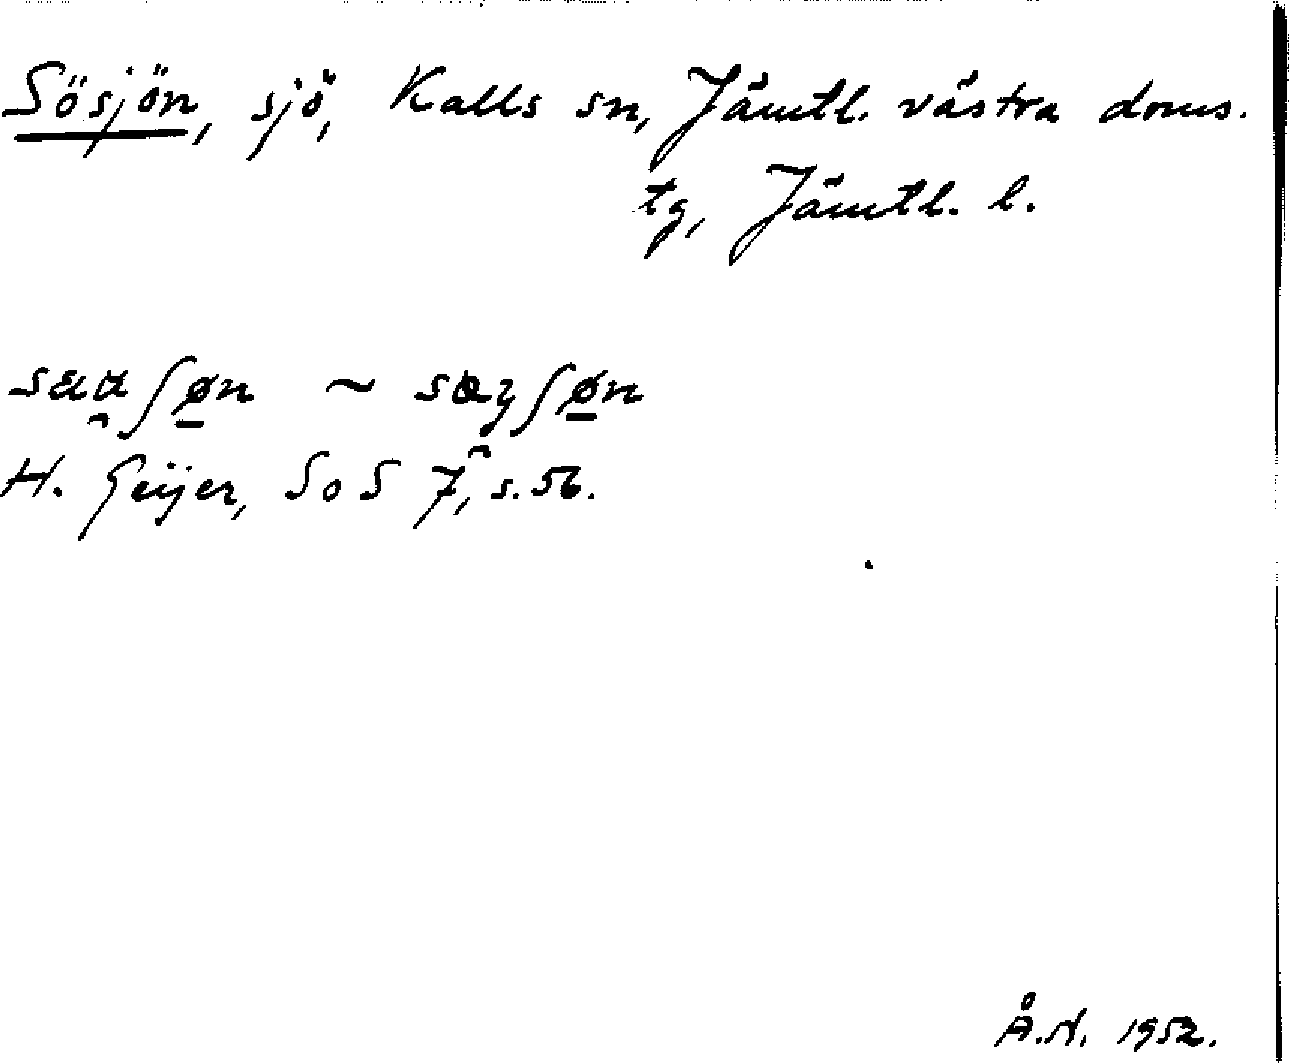 Sösjön, sjö, Kalls sn, Jämtl. västra doms.
tg, Jämtl. l.
~
H. Geijer, SoS 7, s. 56.
Å.N. 1952.